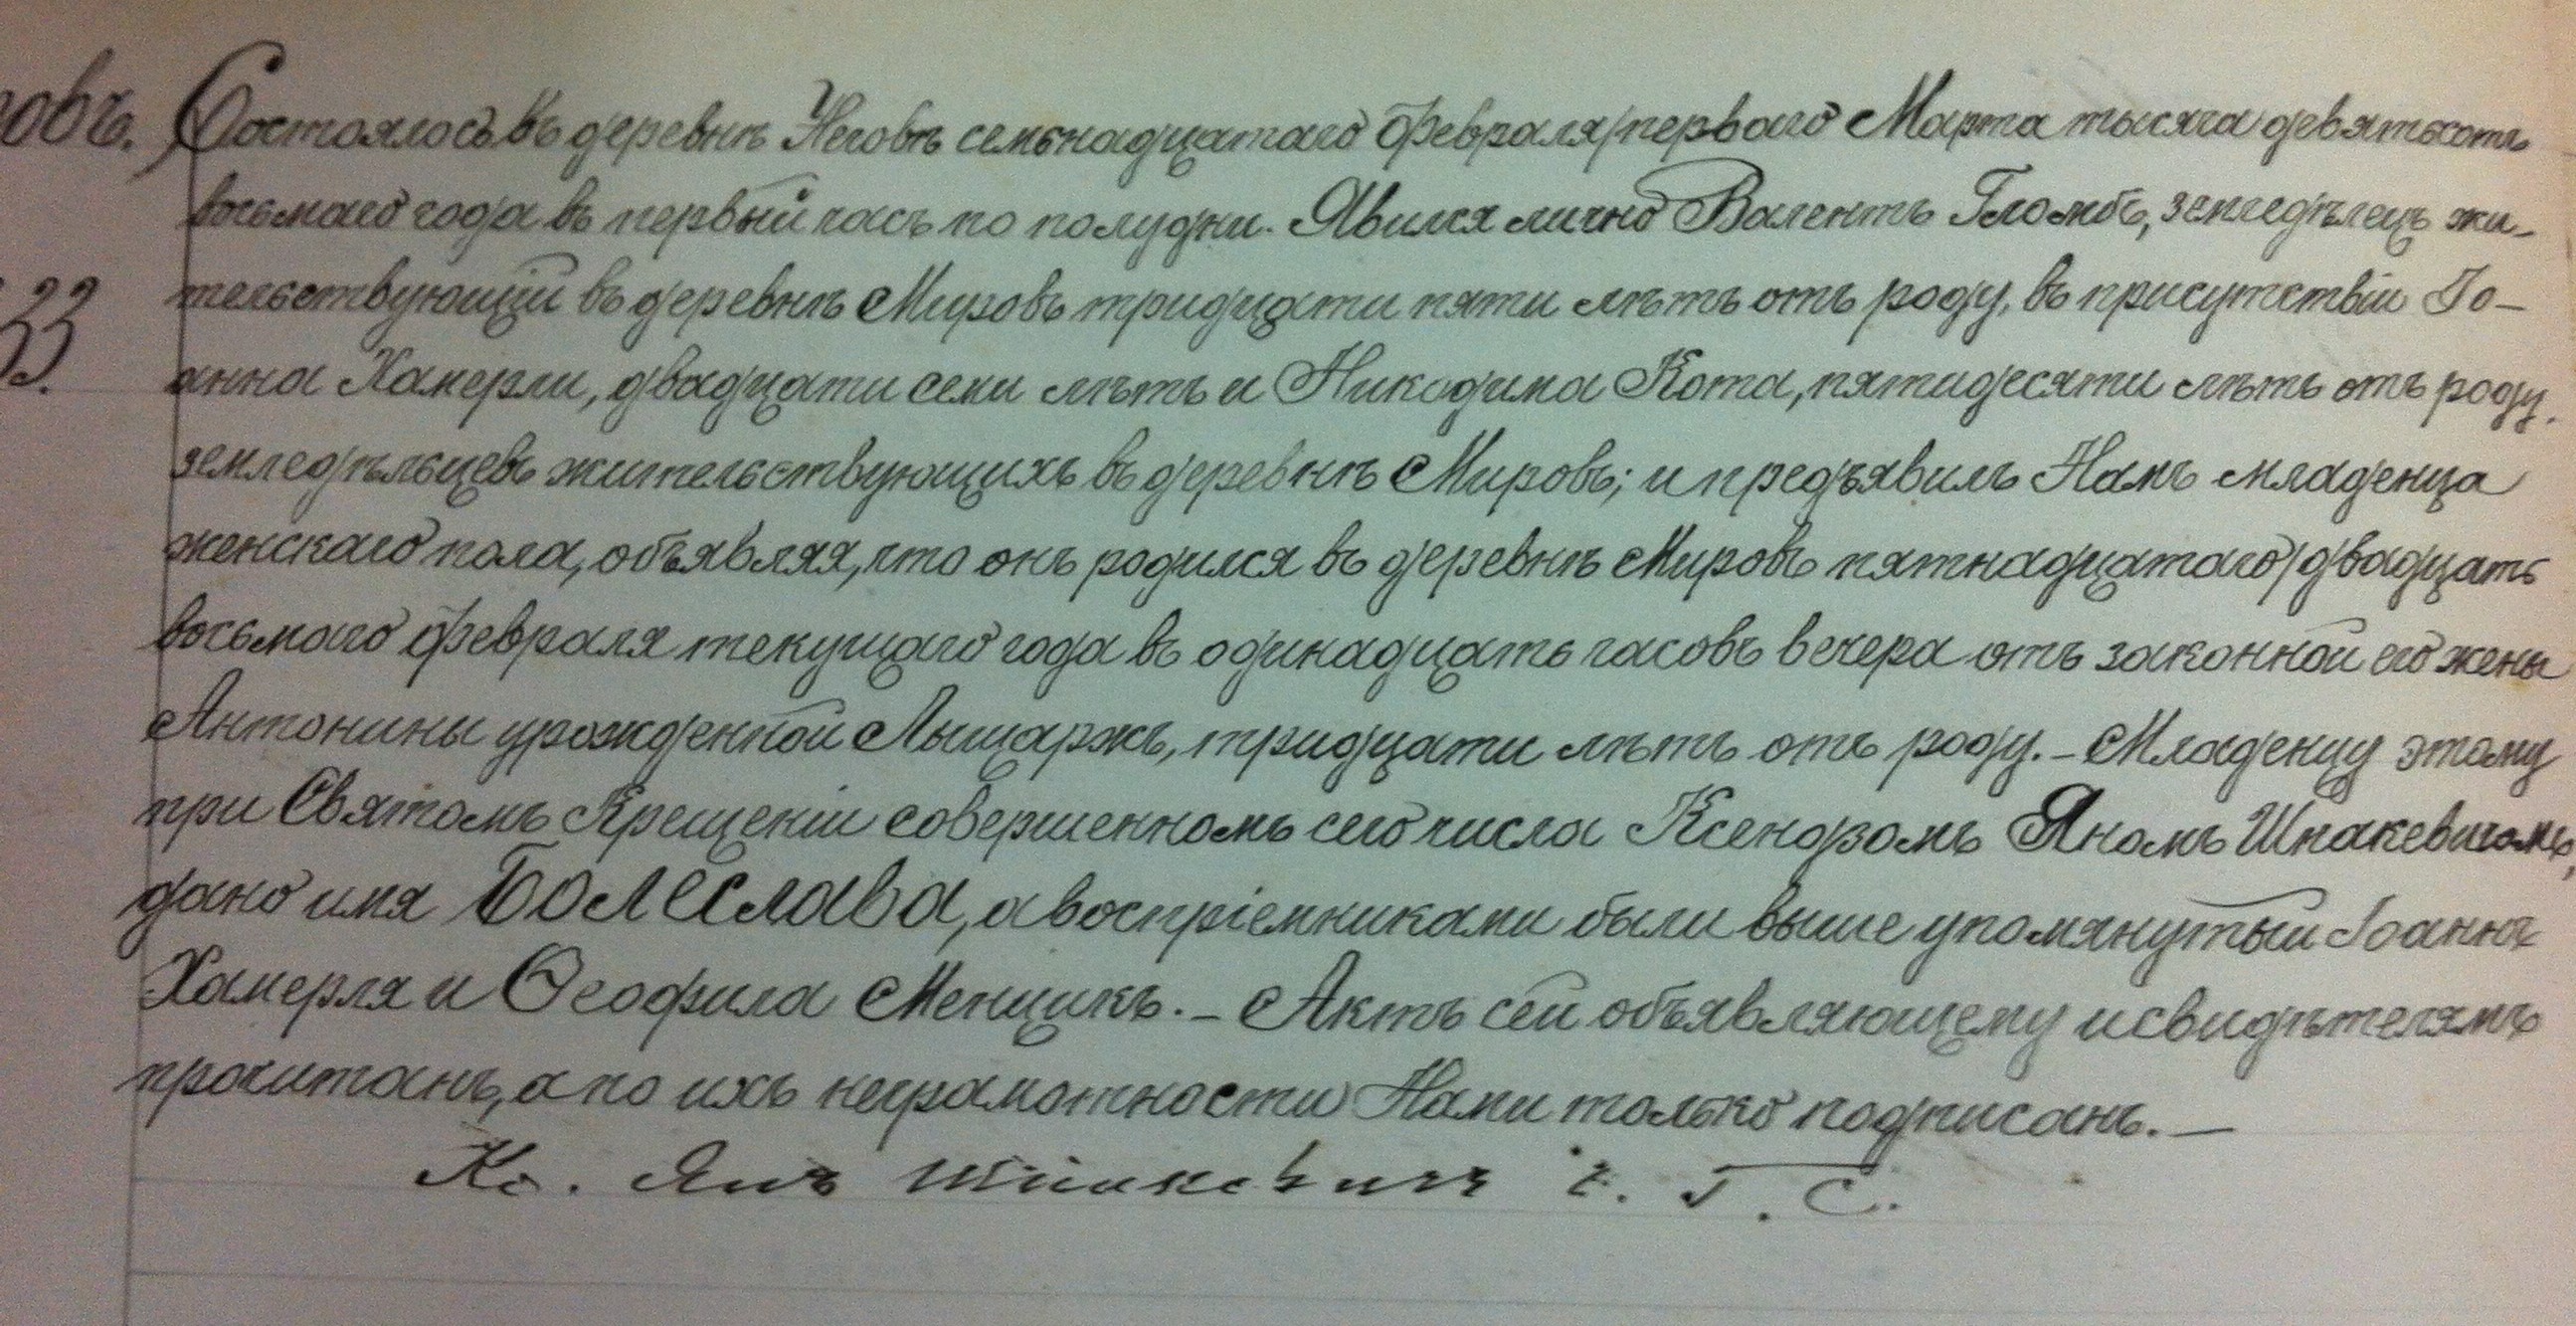 овъ. Состоялось въ деревнѣ Неговѣ семьнадцатаго Февраля/перваго Марта тысяча девятьсотъ
восьмаго года въ первый часъ по полудни. Явился лично Валентъ Гломбъ, земледѣлецъ жи-
тельствующій въ деревнѣ Мировъ тридцати пяти лѣтъ отъ роду, въ присутствіи Іо-
33.
анна Хамерли, двадцати семи лѣтъ и Никодима Кота, пятидесяти лѣтъ отъ роду.
земледѣльцевъ жительствующихъ въ деревнѣ Мировъ; и предъявилъ Намъ младенца
женскаго пола, объявляя, что онъ родился въ деревнѣ Мировъ пятнадцатаго/двадцать
восьмаго Февраля текущаго года въ одинадцать часовъ вечера отъ законной его жены
Антонины урожденной Лыщаржъ, тридцати лѣтъ отъ роду. – Младенцу этому
при Святомъ Крещеніи совершенномъ сего числа Ксендзомъ Яномъ Шпакевичомъ,
дано имя Болеслава, а воспріемниками были выше упомянутый Іоаннъ
Хамерля и Ѳеофила Менцикъ. – Актъ сей объявляющему и свидѣтелямъ
прочитанъ, а по ихъ неграмотности Нами только подписанъ. —
Кс. Янъ Шпакевичъ Г. С.